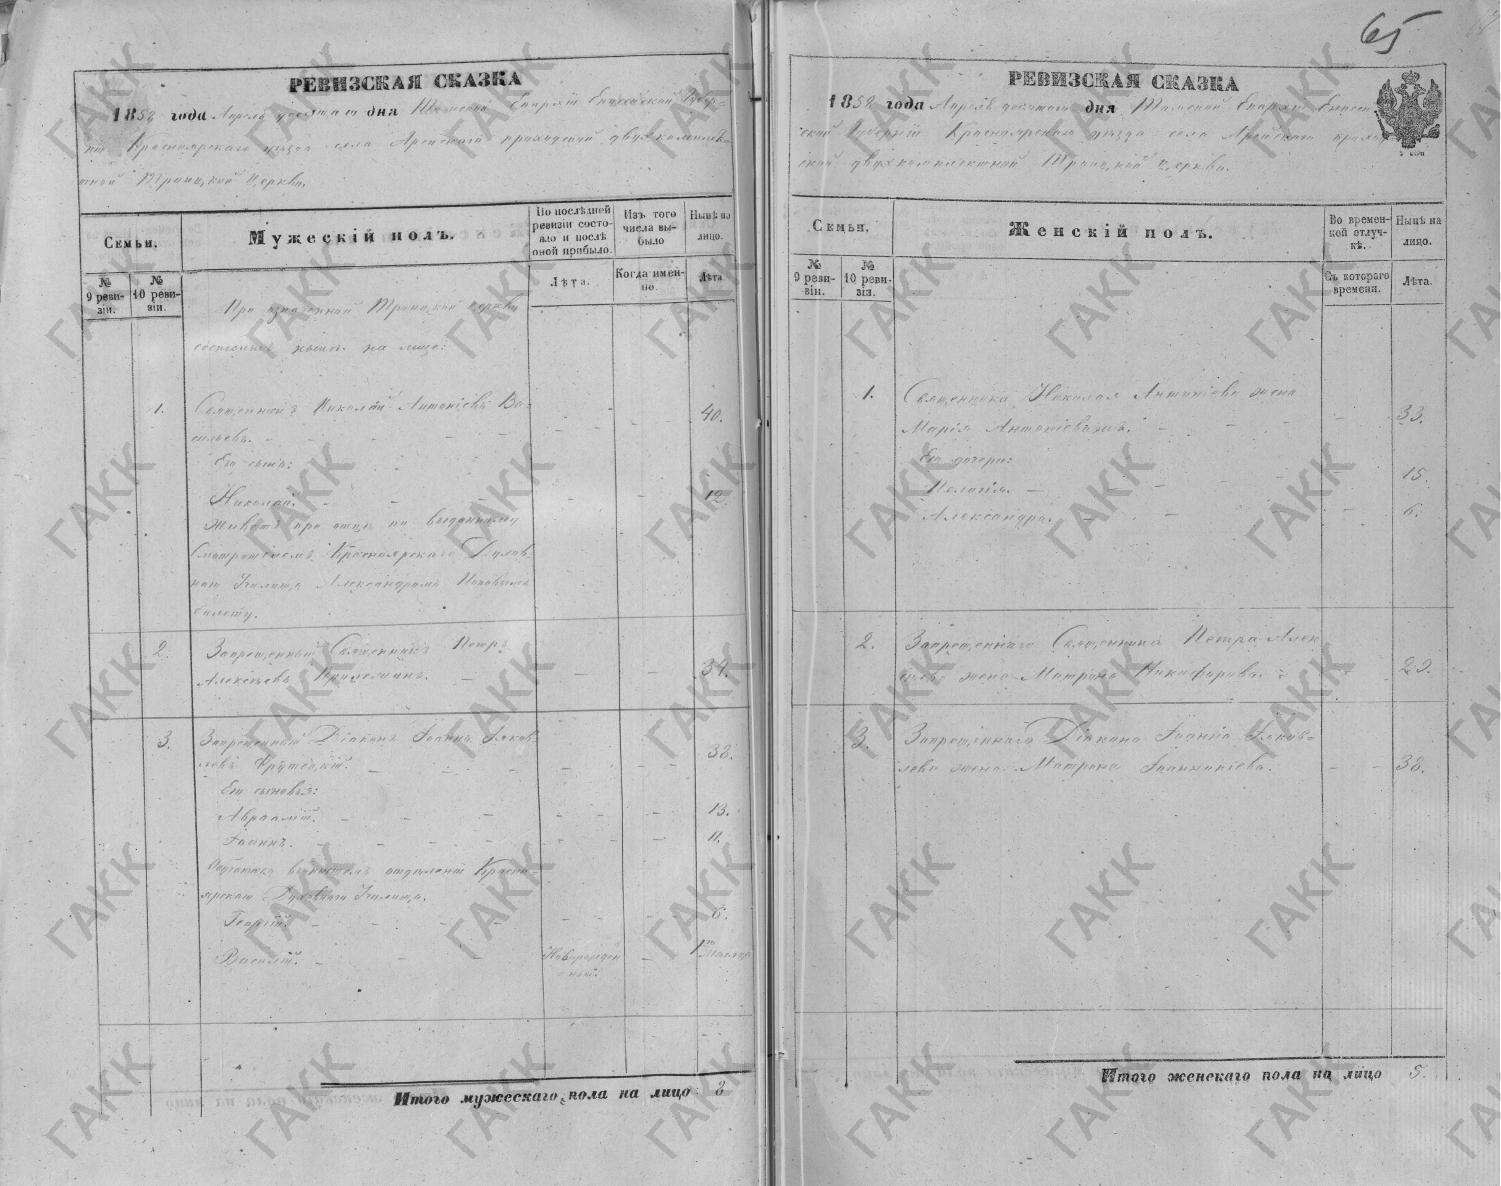 65
РЕВИЗСКАЯ СКАЗКА
1858 года Апреля десятаго дня Томской Епархіи Енисейской Губер=
ніи Красноярскаго уѣзда села Арейскаго приходской двухкомплек=
тной Троицкой Церкви.
Семьи.
Мужескій полъ.
По послѣдней ревизіи состо-
яло и послѣ
оной прибыло.
Изъ того
числа вы-
было
Нынѣ на
лицо.
№
9 реви-
зіи.
№
10 реви-
зіи.
Лѣта.
Когда имен-
но.
Лѣта
При означенной Троицкой церкви
состоитъ нынѣ на лице:
1. Священникъ Николай Антоніевъ Ва-
сильевъ. 40.
Его сынъ:
Николай. 12
Живетъ при отцѣ по выданному
Смотрителемъ Красноярскаго Духов-
наго Училища Александромъ Поповымъ
билету.
2. Запрещенный Священникъ Петръ
Алексѣевъ 34.
3. Запрещенный Діаконъ Іоаннъ Яков-
левъ 38.
Его сыновья:
Авраамій. 13.
Іоаннъ. 11.
отдѣленіи Красно-
ярскаго Духовнаго Училища.
Георгій. 6.
Василій. Новорожден
ный. 1
Итого мужескаго пола на лицо 8
РЕВИЗСКАЯ СКАЗКА
1858 года Апреля десятаго дня Томской Епархіи Енисей
ской Губерніи Красноярскаго уѣзда села Арейскаго приход
ской двухкомплектной Троицкой церкви.
Семьи.
Женскій полъ.
Во времен-
ной отлуч-
кѣ.
Нынѣ на
лицо.
№
9 реви-
зіи.
№
10 реви-
зіи.
Съ котораго
времени.
Лѣта.
1. Священника Николая Антоніева жена
Марія Антоніевна. 33.
Его дочери:
Пелагія. 15.
Александра. 6.
2. Запрещеннаго Священника Петра Алек
сѣева жена Матрона Никифорова. 29.
3. Запрещеннаго Діакона Іоанна Яков=
лева жена Матрона 38.
Итого женскаго пола на лицо 5.
ГАКК